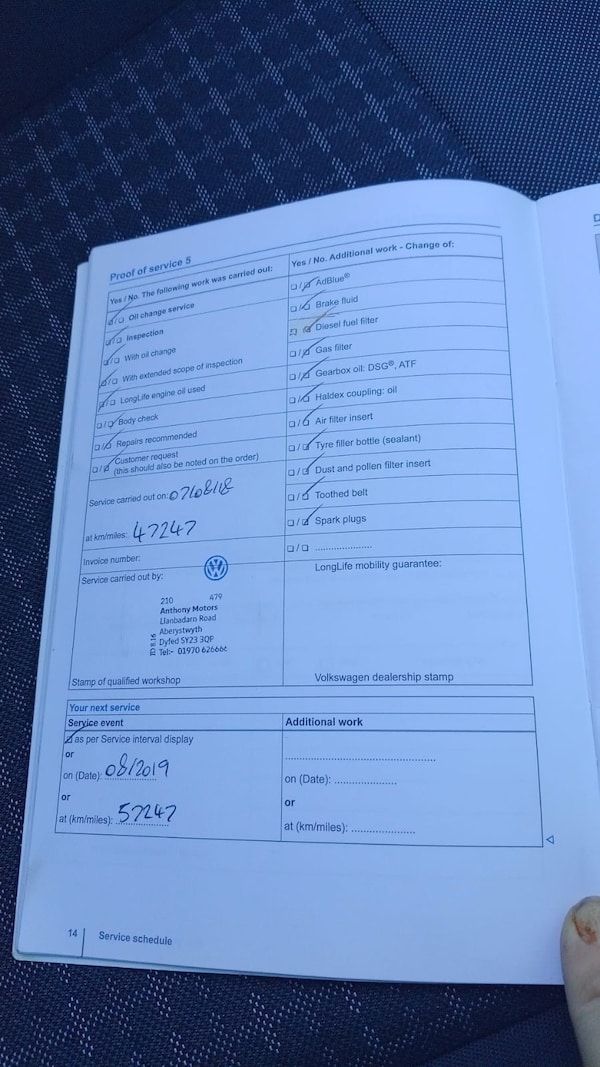 Proof of service 5
Yes / No. The following work was carried out:
Oil change service
Inspection
With oil change
With extended scope of inspection
LongLife engine oil used
Body check
Repairs recommended
Customer request
(this should also be noted on the order)
Service carried out on: 07/08/18
at km/miles: 47247
Invoice number:
Service carried out by:
210 479
Anthony Motors
Llanbadarn Road
Aberystwyth
Dyfed SY23 3QP
Tel:- 01970 626666
ID 8.16
Stamp of qualified workshop
Yes / No. Additional work - Change of:
AdBlue®
Brake fluid
Diesel fuel filter
Gas filter
Gearbox oil: DSG®, ATF
Haldex coupling: oil
Air filter insert
Tyre filler bottle (sealant)
Dust and pollen filter insert
Toothed belt
Spark plugs
LongLife mobility guarantee:
Volkswagen dealership stamp
Your next service
Service event
as per Service interval display
or
on (Date): 08/2019
or
at (km/miles): 57247
Additional work
on (Date):
or
at (km/miles):
14 Service schedule